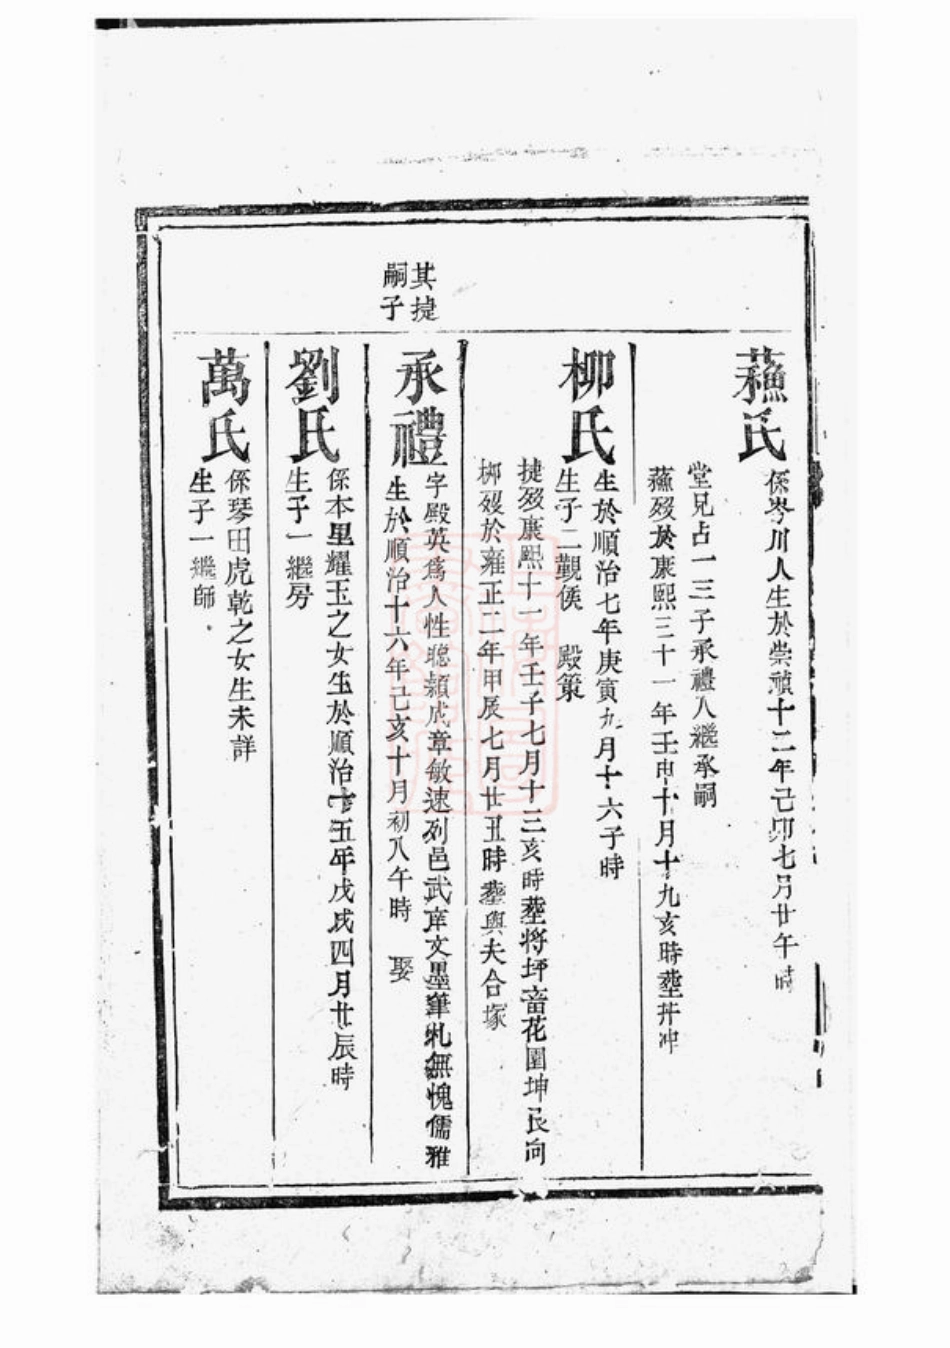 蘓氏
係岑川人生於崇禎十二年己卯七月廿午時
堂兄占一三子承禮入繼承嗣
蘓歿於康熙三十一年壬申十月十九亥時塟芹冲
柳氏
生於順治七年庚寅九月十六子時
生子二觀侯 殿策
捷歿康熙十一年壬子七月十三亥時塟將坪畲花園坤艮向
柳歿於雍正二年甲辰七月廿丑時塟與夫合塚
其捷
嗣子
承禮
字殿英為人性聰頴成章敏速列邑武庠文墨筆札無愧儒雅
生於順治十六年己亥十月初八午時 娶
劉氏
係本里耀玉之女生於順治十五年戊戌四月廿辰時
生子一繼房
萬氏
係琴田虎乾之女生未詳
生子一繼師